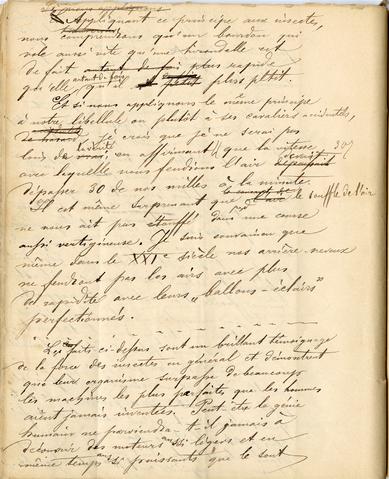 Appliquant ce principe aux insectes,
nous comprendrons qu'un bourdon qui
vole aussi vite qu'une hirondelle est
de fait autant de fois plus rapide
qu'elle, autant de fois qu'il est plus petit.
Et si nous appliquons le même principe
à notre libellule ou plutôt à ses cavaliers accidentels,
je crois que je ne serai pas
loin de la vérité en affirmant que la vitesse
avec laquelle nous fendions l'air devait
dépasser 30 de nos milles à la minute.
Il est même surprenant que le souffle de l'air
ne nous ait pas étouffé dans une course
aussi vertigineuse. Je suis convaincu que
même dans le XXIe siècle nos arrière-neveux
ne fendront pas les airs avec plus
de rapidité avec leurs "ballons-éclairs"
perfectionnés.
Les faits ci-dessus sont un brillant témoignage
de la force des insectes en général et démontrent
que leur organisme surpasse de beaucoup
les machines les plus parfaites que les hommes
aient jamais inventées. Peut-être le génie
humain ne parviendra-t-il jamais à
découvrir des moteurs aussi légers et en
même temps aussi puissants que le sont